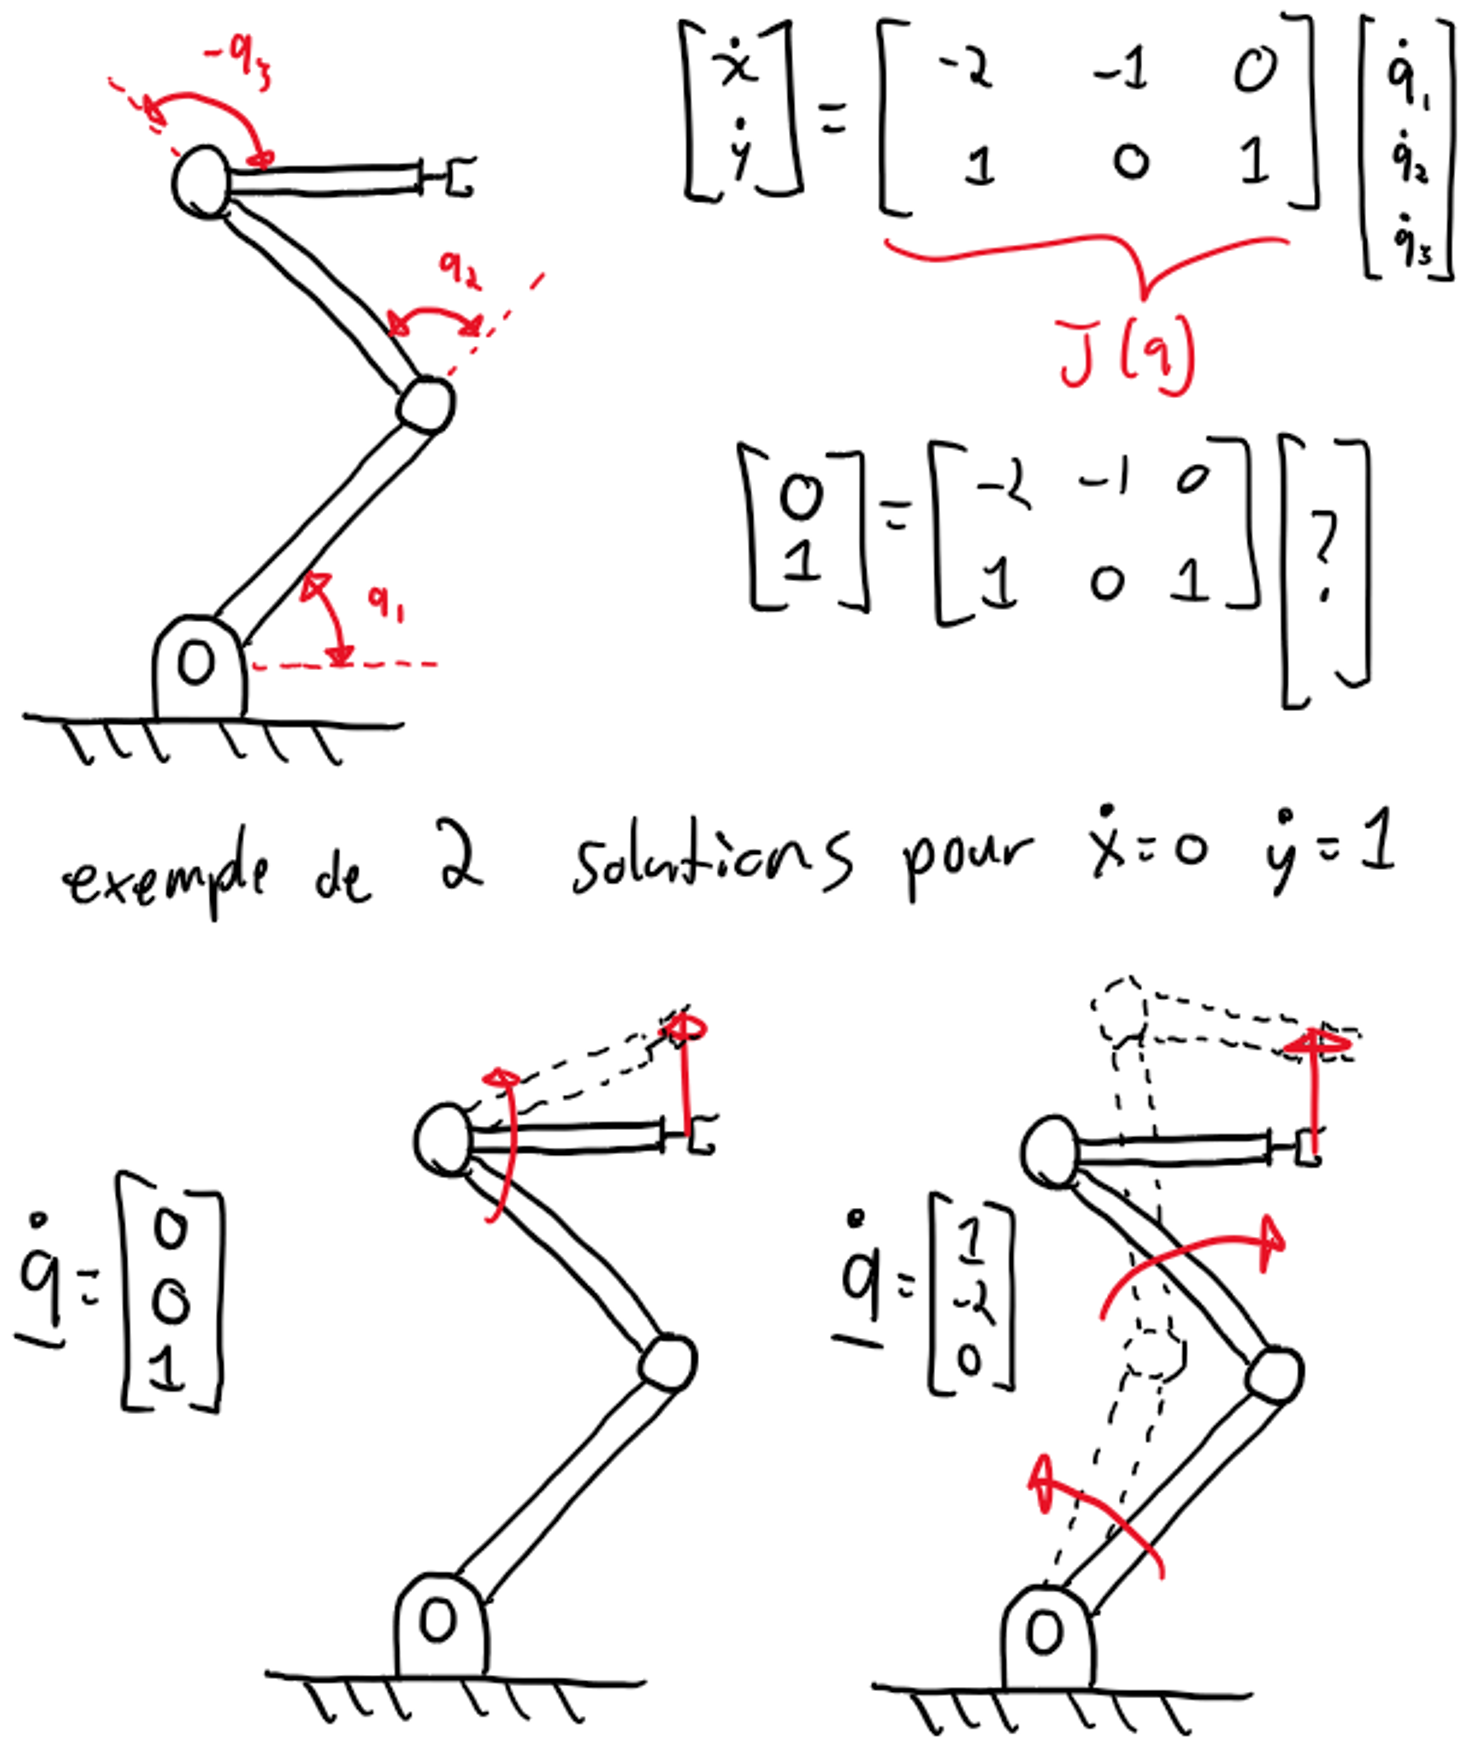 -q₃
[ẋ ẏ] = [-2 -1 0; 1 0 1] [q̇₁ q̇₂ q̇₃]
q₂
J(q)
[0 1] = [-2 -1 0; 1 0 1] [?]
q₁
exemple de 2 solutions pour ẋ=0 ẏ=1
q̇ = [0 0 1]
q̇ = [1 -2 0]